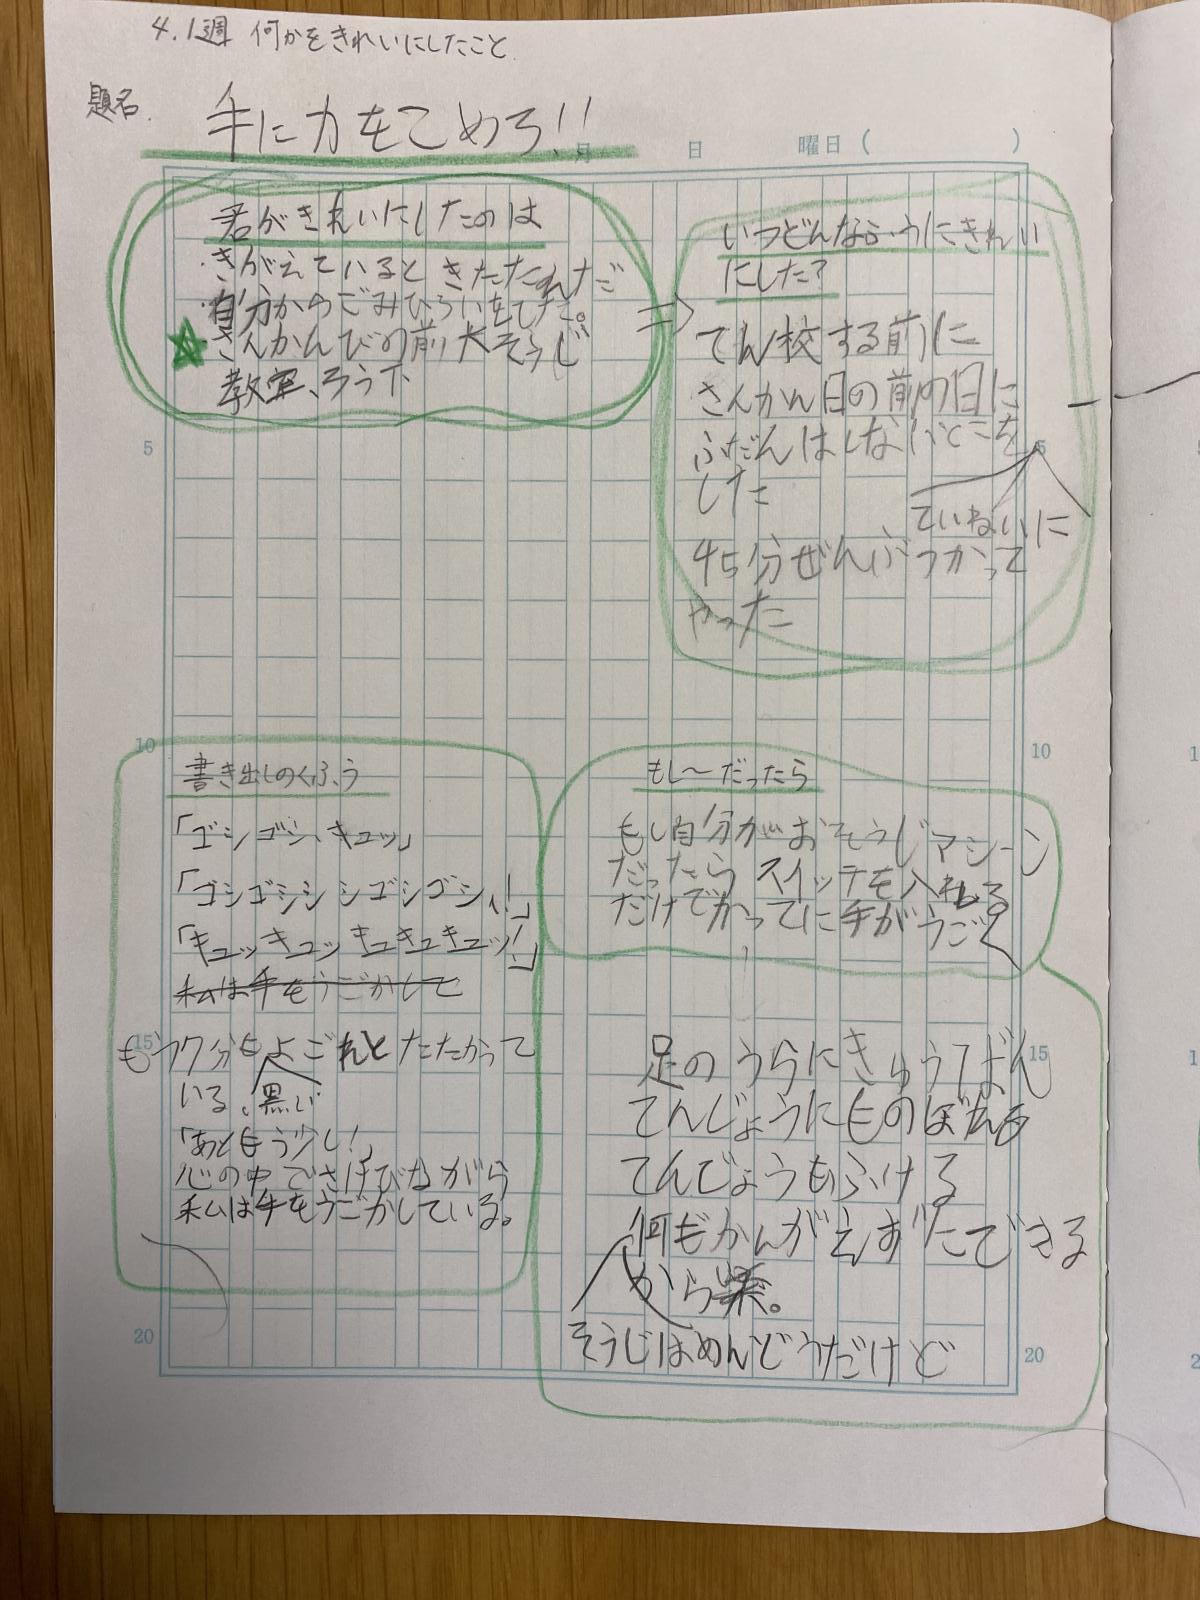 4.1週 何かをきれいにしたこと
題名.
手に力をこめろ!!
月 日 曜日( )
君がきれいにしたのは
・きがえていると きたた
・自分からごみひろいをした。
さんかんびの前大そうじ
教室、ろう下
いつどんなふうにきれい
にした?
てん校する前に
さんかん日の前の日に
ふだんはしないとこを
した
ていねいに
45分ぜんぶつかって
やった
書き出しのくふう
「ゴシゴシ、キュッ」
「ゴシゴシシ シゴシゴシ、!」
「キュッキュッ キュキュキュッ!」
私は手をうごかして
もう7分もよごれとたたかって
いる、黒い
「あともう少し!」
心の中でさけびながら
私は手をうごかしている。
もし〜だったら
もし自分がおそうじマシーン
だったら スイッチを入れる
だけでかってに手がうごく
足のうらにきゅうばん
てんじょうにものぼれる
てんじょうもふける
何もかんがえずにできる
から楽。
そうじはめんどうだけど
5
5
10
10
15
15
20
20